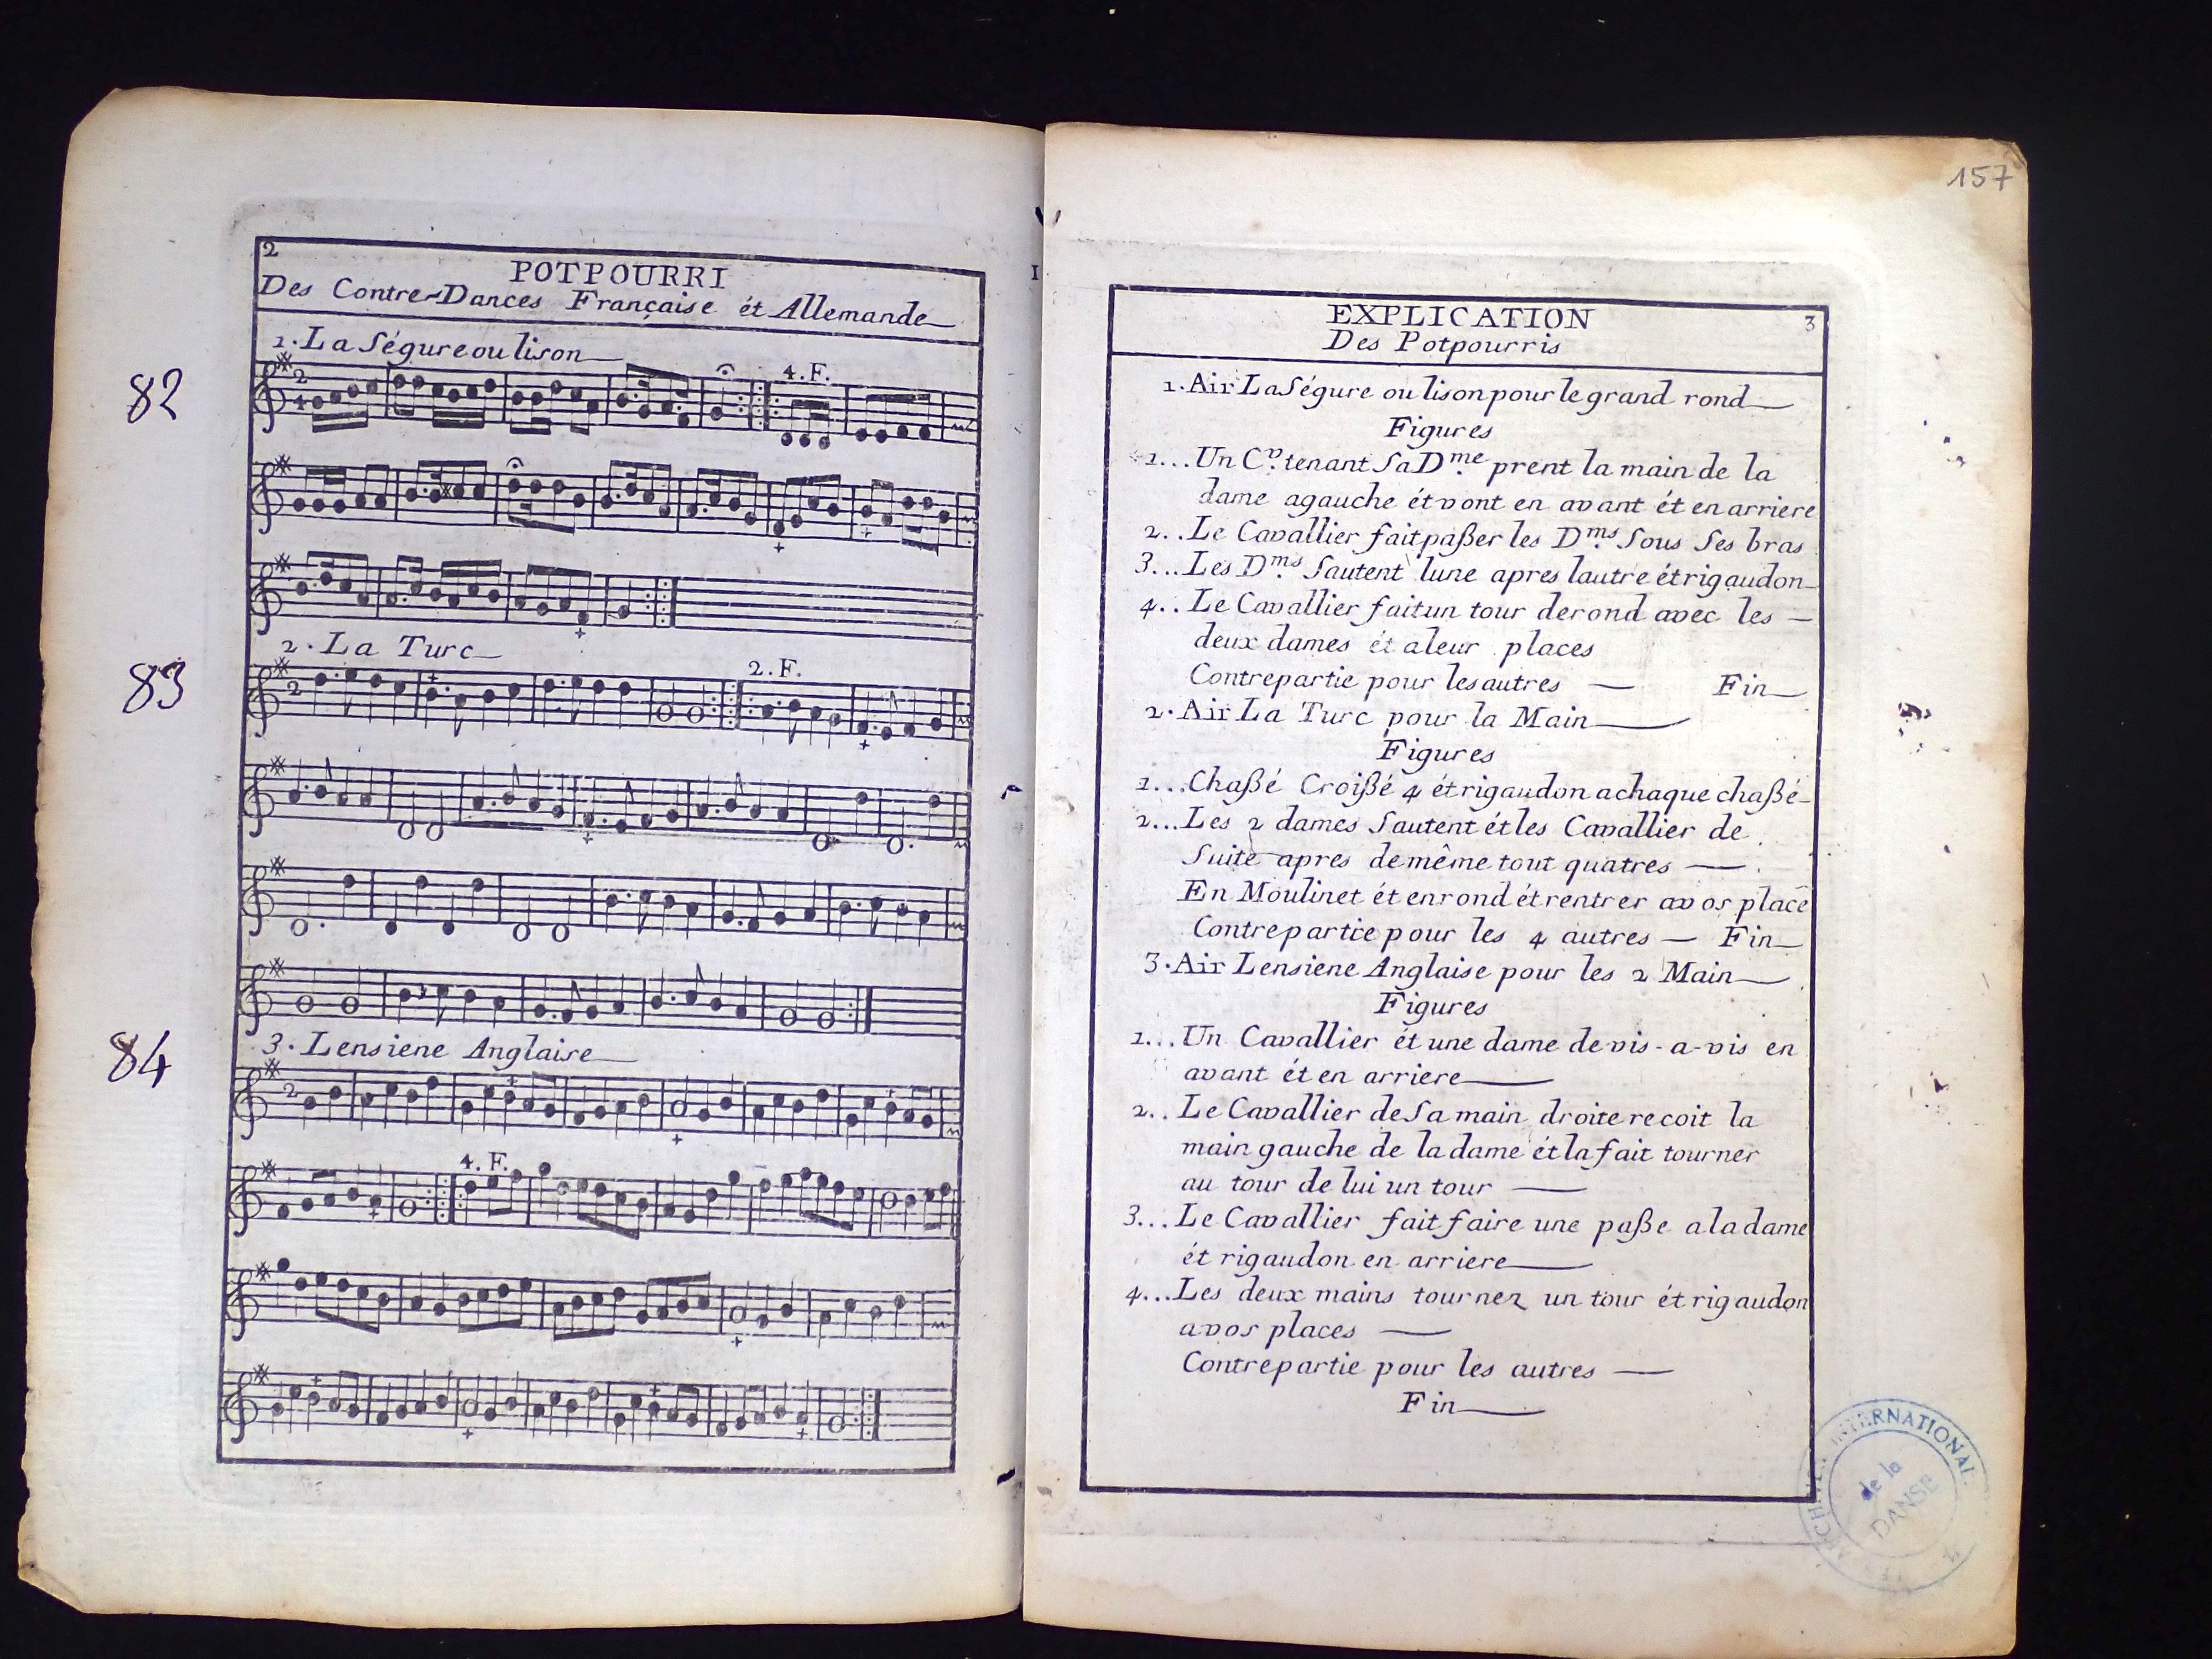 2
POTPOURRI
Des Contre-Dances Française ét Allemande
1. La Ségure ou lison
82
2
4
4. F.
2. La Turc
83
2
2. F.
84
3. Lensiene Anglaise
2
4. F.
157
EXPLICATION
3
Des Potpourris
1. Air La Ségure ou lison pour le grand rond
Figures
1... Un Cr. tenant Sa Dme. prent la main de la
dame agauche ét vont en avant ét en arriere
2.. Le Cavallier fait paßer les Dms. Sous Ses bras
3... Les Dms. Sautent lune apres lautre ét rigaudon
4.. Le Cavallier fait un tour de rond avec les
deux dames ét aleur places
Contrepartie pour les autres — Fin
2. Air La Turc pour la Main
Figures
1... Chaßé Croißé 4 ét rigaudon achaque chaßé
2... Les 2 dames Sautent ét les Cavallier de
Suite apres de même tout quatres —
En Moulinet ét en rond ét rentrer avos place
Contrepartie pour les 4 autres — Fin
3. Air Lensiene Anglaise pour les 2 Main
Figures
1... Un Cavallier ét une dame de vis-a-vis en
avant ét en arriere
2.. Le Cavallier de Sa main droite recoit la
main gauche de la dame ét la fait tourner
au tour de lui un tour —
3... Le Cavallier fait faire une paße ala dame
ét rigaudon en arriere
4... Les deux mains tournez un tour ét rigaudon
avos places —
Contrepartie pour les autres —
Fin
INTERNATIONAL
de la
DANSE